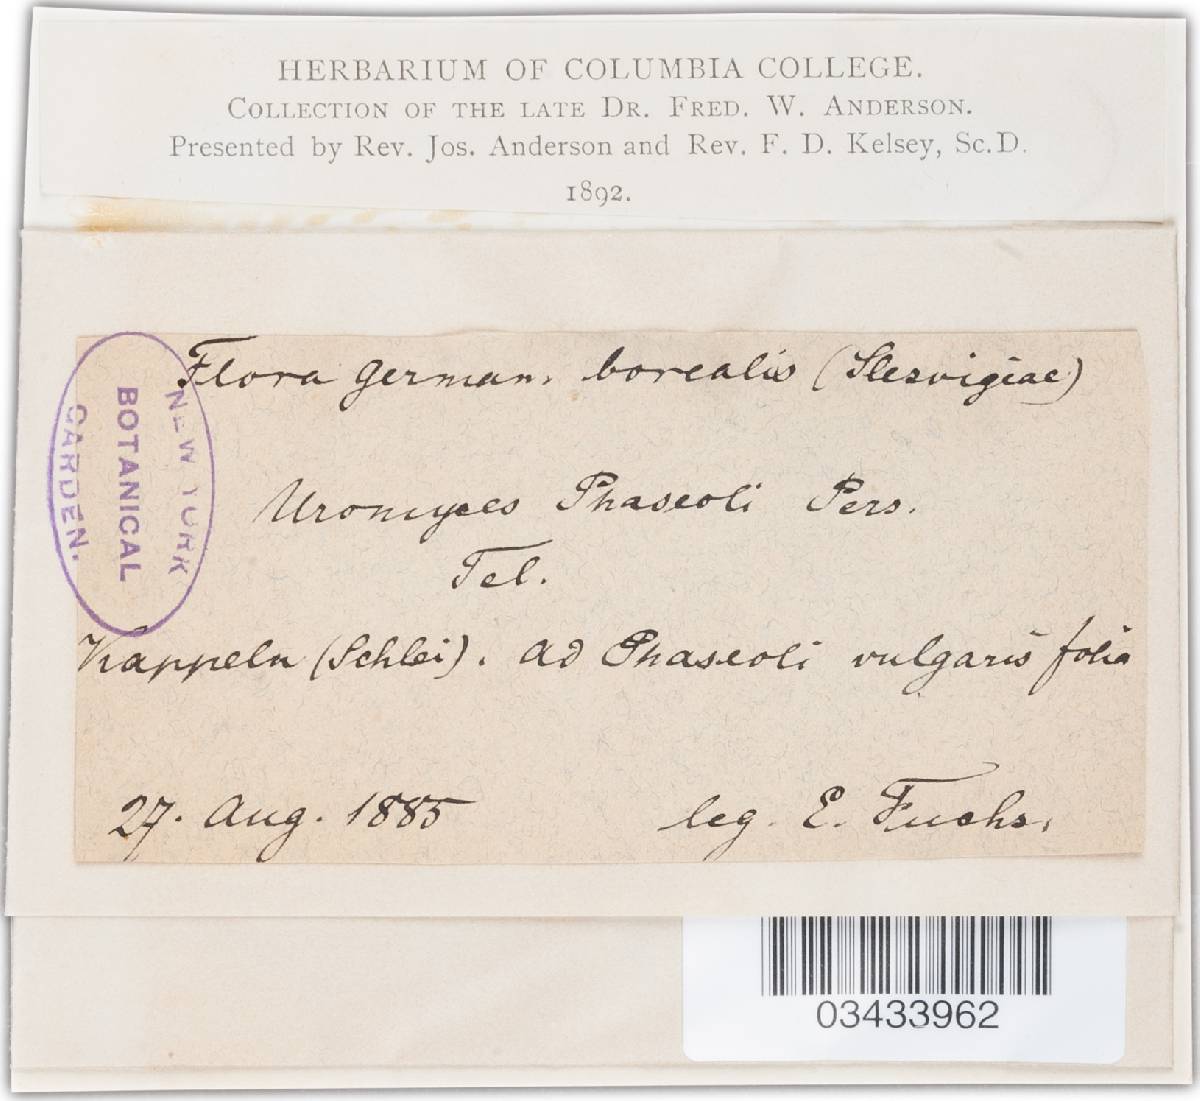 HERBARIUM OF COLUMBIA COLLEGE.
COLLECTION OF THE LATE DR. FRED. W. ANDERSON.
Presented by Rev. Jos. Anderson and Rev. F. D. Kelsey, Sc.D.
1892.
Flora german. borealis (Slesvigiae)
NEW YORK
BOTANICAL
GARDEN.
Uromyces Phaseoli Pers.
Tel.
Kappeln (Schlei). ad Phaseoli vulgaris folia
27. Aug. 1885 leg. E. Fuchs.
03433962